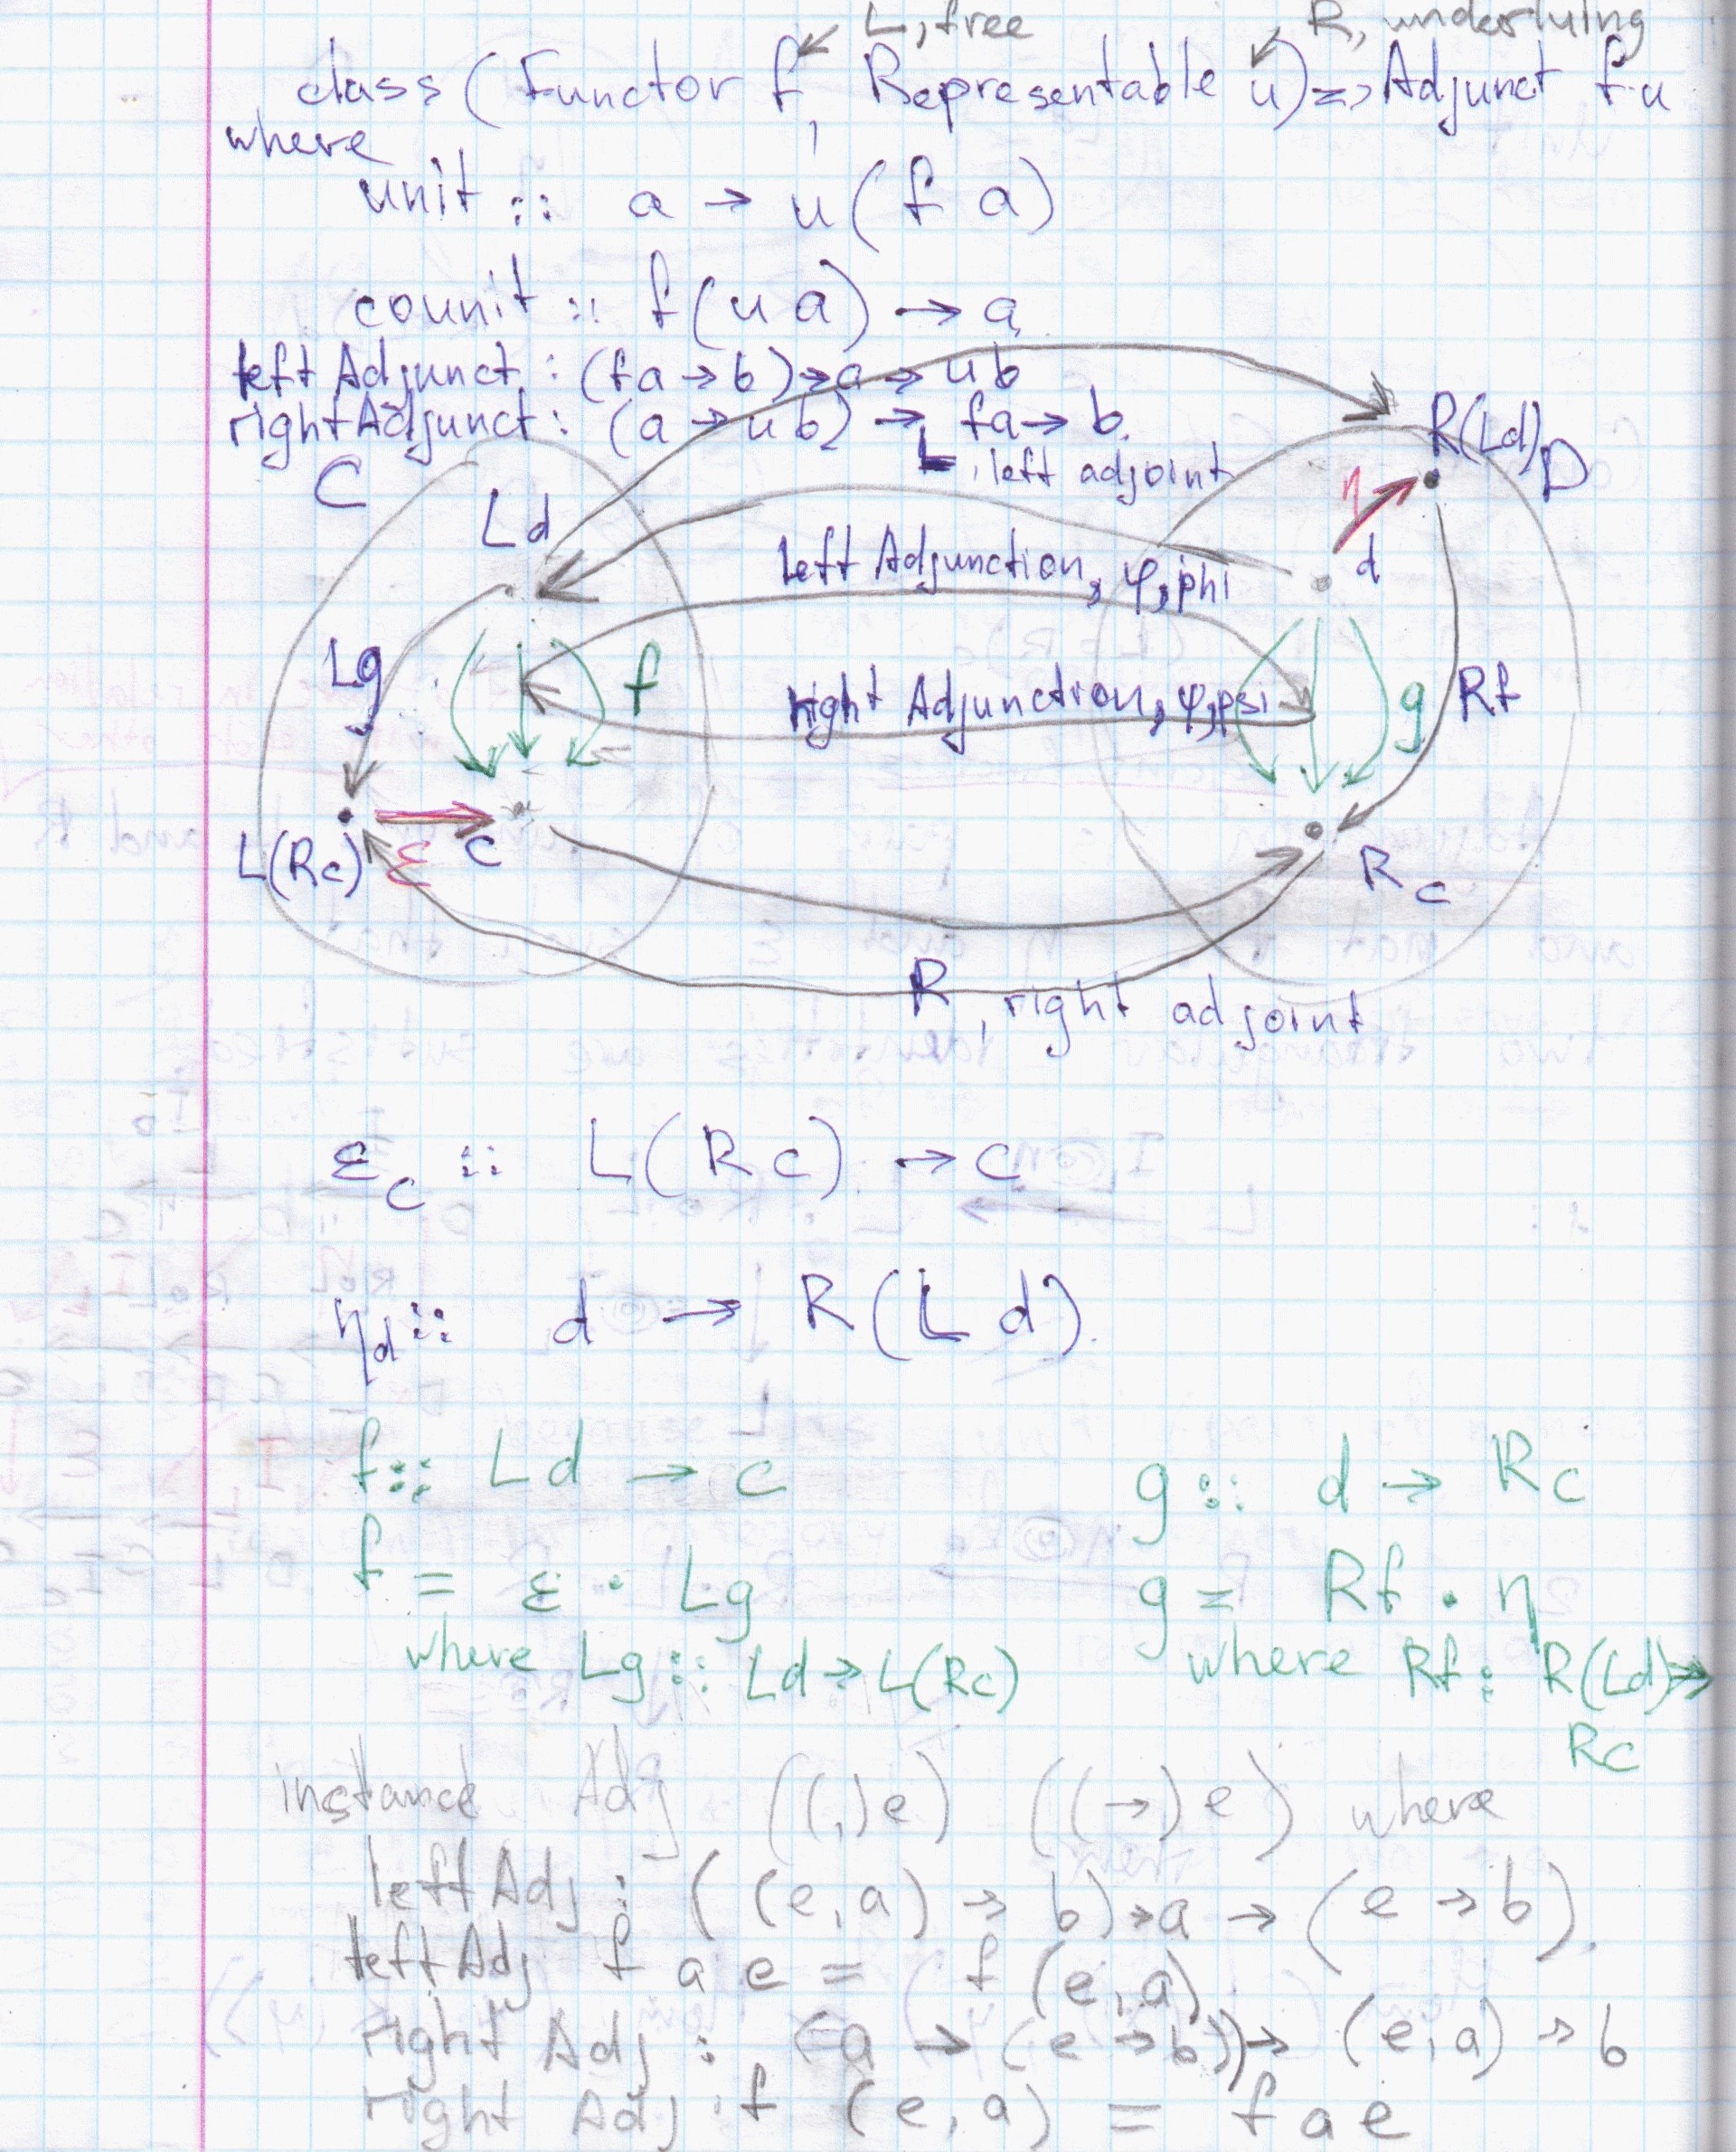 L, free R, underlying
class (Functor f, Representable u) => Adjunct f u
where
unit :: a → u(f a)
counit :: f(u a) → a
left Adjunct : (fa → b) → a → ub
right Adjunct : (a → ub) → fa → b.
L, left adjoint
C
D
R(Ld)
Ld
η
d
left Adjunction, φ, phi
Lg
f
right Adjunction, ψ, psi
g
Rf
L(Rc)
ε
c
Rc
R, right adjoint
ε_c :: L(Rc) → c
η_d :: d → R(Ld).
f :: Ld → c
g :: d → Rc
f = ε · Lg
g = Rf · η
where Lg :: Ld → L(Rc)
where Rf : R(Ld) →
Rc
instance Adj ((,)e) ((→)e) where
left Adj : ((e,a) → b) → a → (e → b).
left Adj f a e = f (e,a)
right Adj : (a → (e → b)) → (e,a) → b
right Adj f (e,a) = f a e